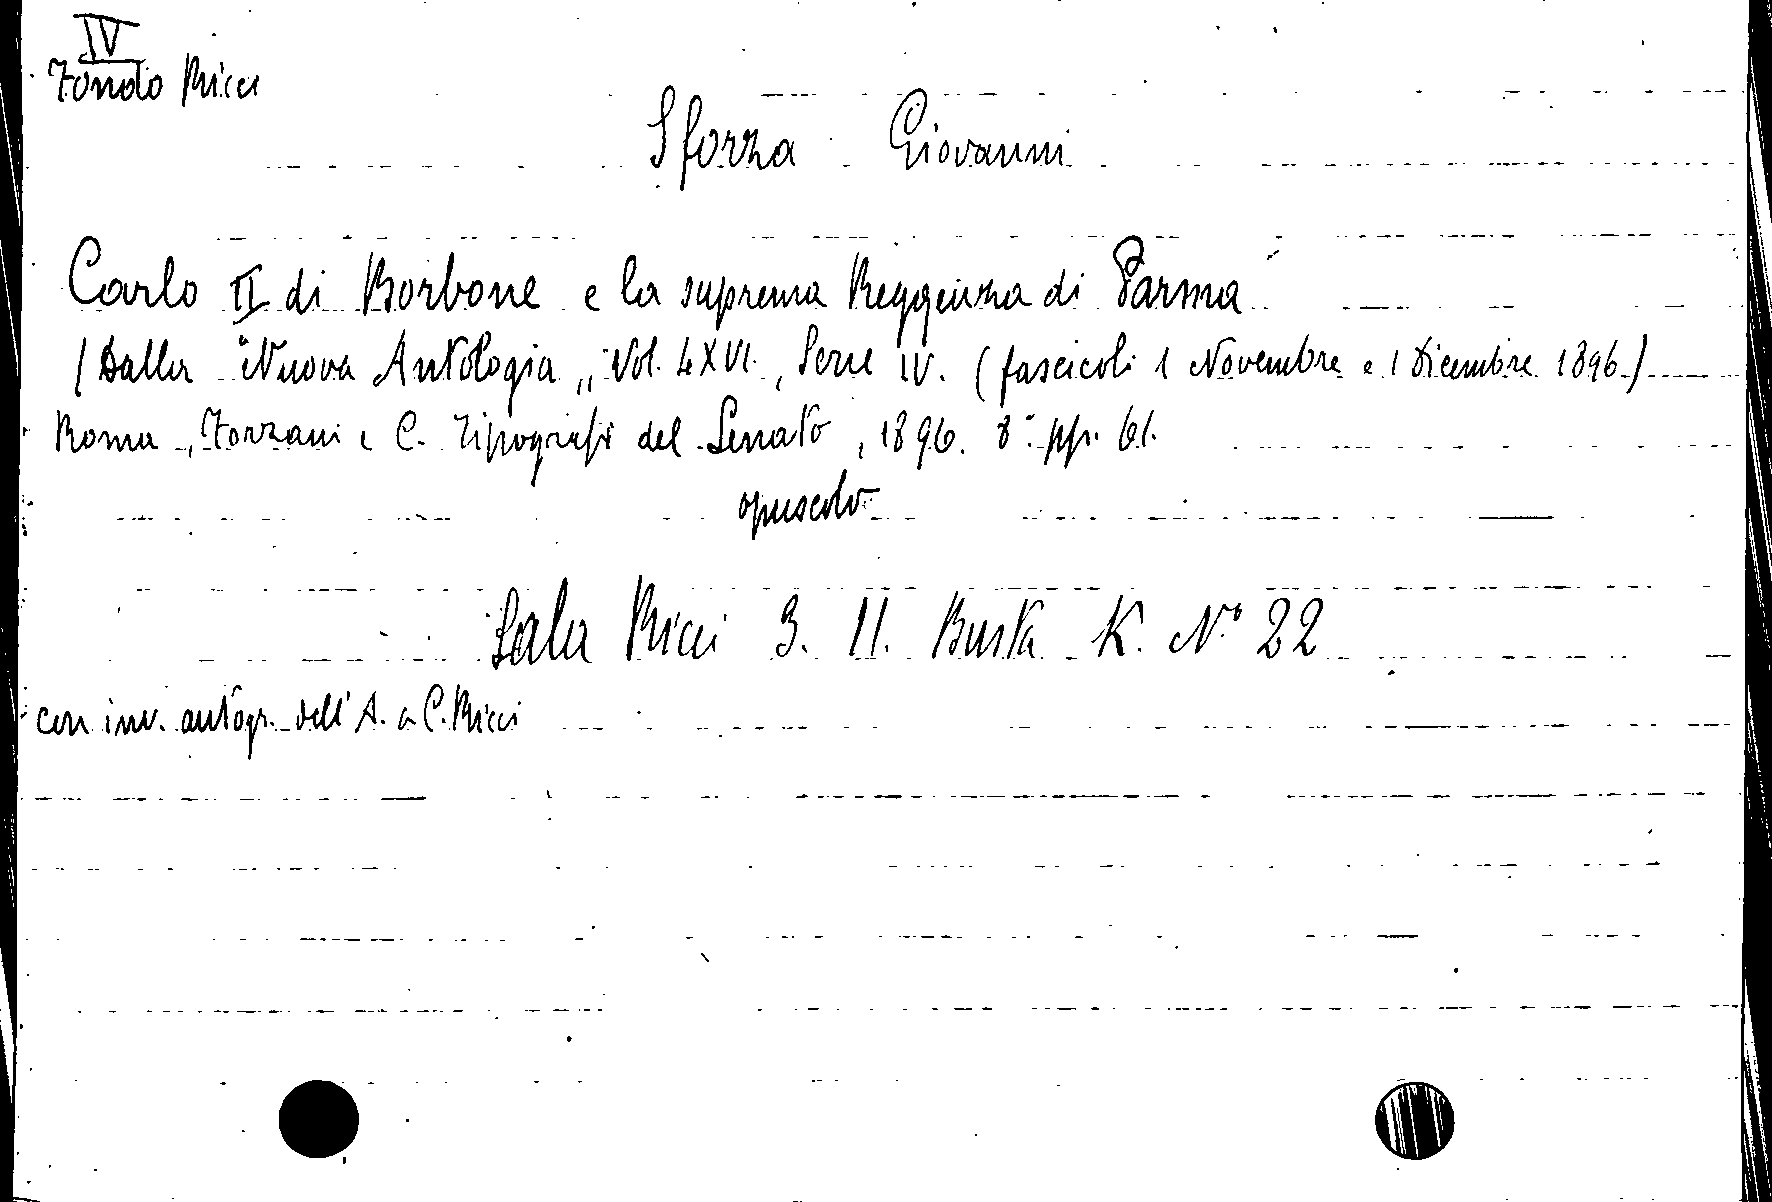 IV
Fondo Ricci
Sforza Giovanni
Carlo II di Borbone e la suprema Reggenza di Parma
(Dalla "Nuova Antologia„ Vol. LXVI., Serie IV. (fascicoli 1 Novembre e 1 Dicembre 1896)
Roma, Forzani e C. Tipografi del Senato, 1896. 8° pp. 61.
opuscolo
Sala Ricci 3. II. Busta K. N° 22
con inv. autogr. dell'A. a C. Ricci